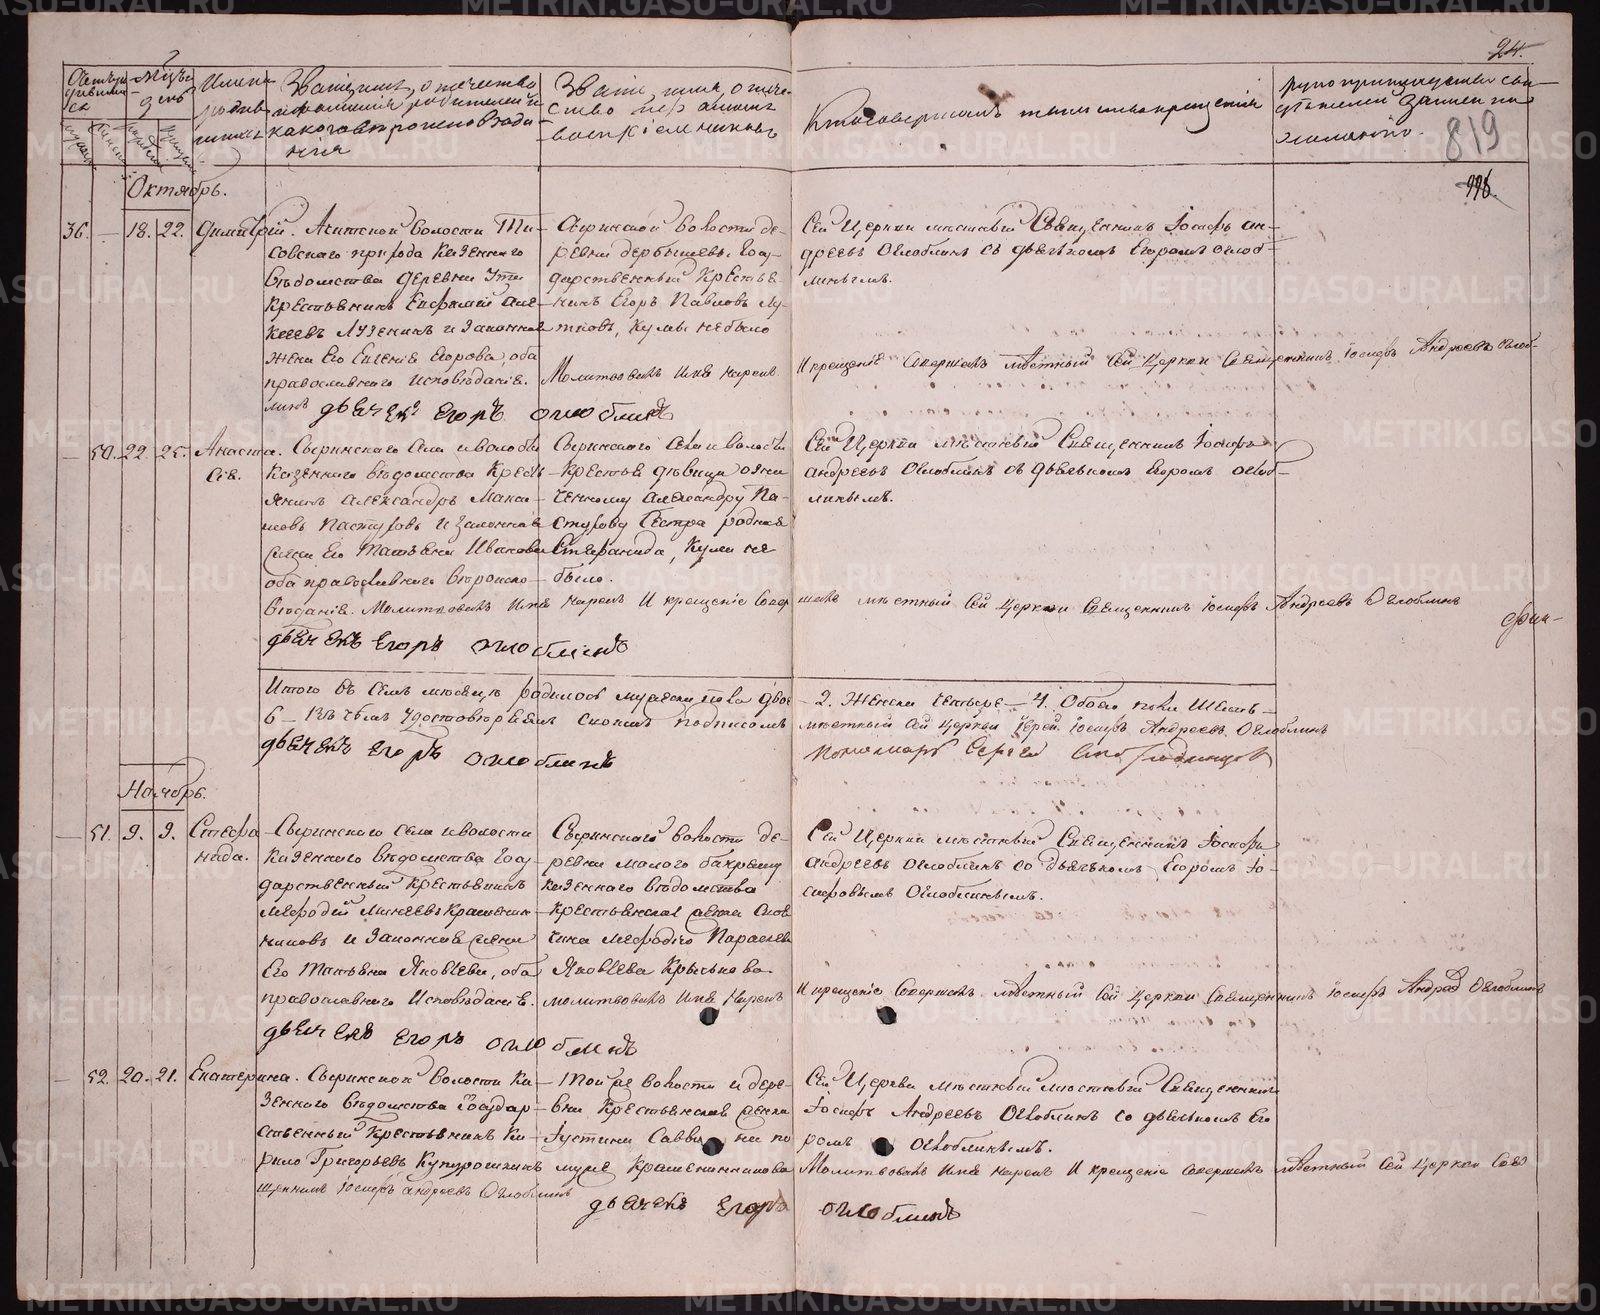 24.
819
Счетъ родившихся
Мѣсяцъ и день
Имена родившихся
Званіе, имя, отчество и фамилія родителей и какого вѣроисповѣданія
Званіе, имя, отчество и фамилія воспріемниковъ
Кто совершалъ таинство крещенія
Рукоприкладство свидѣтелей записи по желанію.
Октябрь.
36. — 18. 22. Димитрій.
Ачитской волости
совскаго прихода Казеннаго
вѣдомства деревни Ути
Крестьянинъ Але-
ксеевъ Лузенинъ и законная
жена его Евгенія Егорова, оба
православнаго исповѣданія.
Сыринской волости де-
ревни Дербышевой Госу-
дарственный Крестья-
нинъ Егоръ Павловъ
Кумы не было
Сей Церкви мѣстный Священникъ Іосифъ Ан-
дреевъ Оглоблинъ съ дьячкомъ Егоромъ Оглоб-
линымъ.
Молитвовалъ имя нарекъ
И крещеніе совершалъ мѣстный сей Церкви Священникъ Іосифъ Андреевъ Оглоб-
линъ дьячекъ Егоръ Оглоблинъ
— 50. 22. 25. Анаста-
сія.
Сыринскаго села и волости
Казеннаго вѣдомства Кресть-
янинъ Александръ Макси-
мовъ Пастуховъ и законная
жена его Татьяна Иванова
оба православнаго вѣроиспо-
вѣданія.
Сыринскаго села и волости
Крестьян дѣвица озна-
ченному Александру Па-
стухову сестра родная
Стефанида, Кума не
было.
Сей Церкви мѣстный Священникъ Іосифъ
Андреевъ Оглоблинъ съ дьячкомъ Егоромъ Оглоб-
линымъ.
Молитвовалъ имя нарекъ И крещеніе совершалъ мѣстный Сей Церкви Священникъ Іосифъ Андреевъ Оглоблинъ
дьячекъ Егоръ Оглоблинъ
Итого въ семъ мѣсяцѣ родилось мужеска пола двое — 2. Женска четыре — 4. Обоего пола шесть —
6 — Въ чемъ удостовѣряемъ своимъ подписомъ мѣстный сей Церкви Іерей Іосифъ Андреевъ Оглоблинъ
дьячекъ Егоръ Оглоблинъ
Пономарь Сергей
Ноябрь.
— 51. 9. 9. Стефа-
нида.
Сыринскаго села и волости
Казеннаго вѣдомства Госу-
дарственный Крестьянинъ
Мефодій Минеевъ Крашенин-
никовъ и законная жена
его Татьяна Яковлева, оба
православнаго исповѣданія.
Сыринской волости де-
ревни Малого
казеннаго вѣдомства
Крестьянская жена
Мефодія
Яковлева Крылькова
Сей Церкви мѣстный Священникъ Іосифъ
Андреевъ Оглоблинъ со дьячкомъ Егоромъ Іо-
сифовымъ Оглоблинымъ.
молитвовалъ имя нарекъ И крещеніе совершалъ мѣстный Сей Церкви Священникъ Іосифъ Андреевъ Оглоблинъ
дьячекъ Егоръ Оглоблинъ
— 52. 20. 21. Екатерина.
Сыринской волости Ка-
зеннаго вѣдомства Государ-
ственный Крестьянинъ Ки-
рило Григорьевъ
Той же волости и дере-
вни Крестьянская женка
Іустина Савви на по
мужѣ Крашенинникова
Сей Церкви мѣстный мѣстный Священникъ
Іосифъ Андреевъ Оглоблинъ со дьячкомъ Его-
ромъ Оглоблинымъ.
Молитвовалъ имя нарекъ И крещеніе совершалъ мѣстный Сей Церкви Свя-
щенникъ Іосифъ Андреевъ Оглоблинъ
дьячекъ Егоръ Оглоблинъ
METRIKI.GASO-URAL.RU